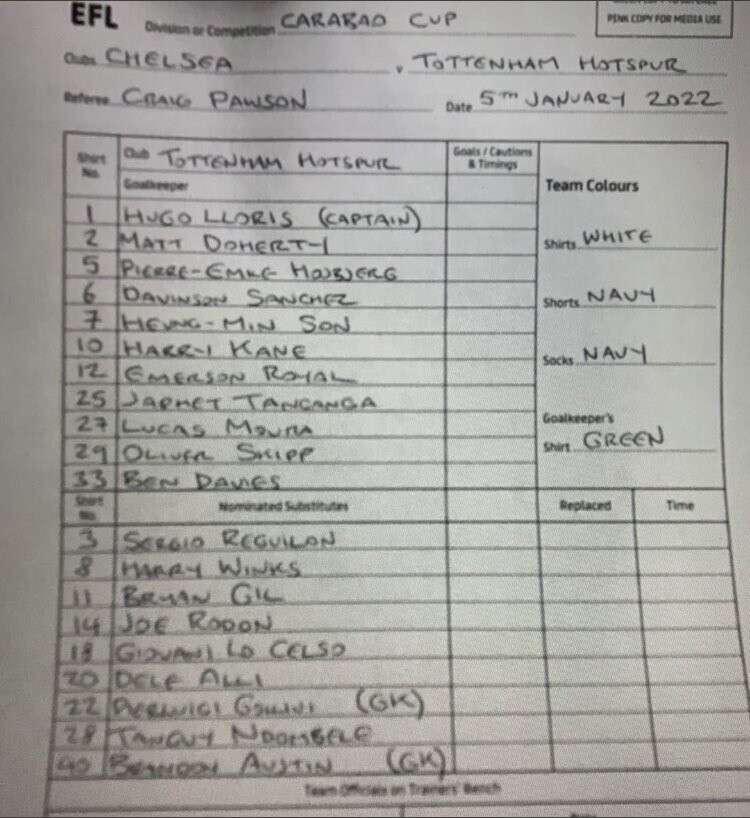 EFL Division or Competition CARABAO CUP
PINK COPY FOR MEDIA USE
Clubs CHELSEA v TOTTENHAM HOTSPUR
Referee CRAIG PAWSON Date 5TH JANUARY 2022
Shirt No. Club TOTTENHAM HOTSPUR Goals / Cautions & Timings
Goalkeeper Team Colours
1 HUGO LLORIS (CAPTAIN)
2 MATT DOHERTY Shirts WHITE
5 PIERRE-EMILE HOJBJERG
6 DAVINSON SANCHEZ Shorts NAVY
7 HEUNG-MIN SON
10 HARRY KANE Socks NAVY
12 EMERSON ROYAL
25 JAPHET TANGANGA Goalkeeper's
27 LUCAS MOURA Shirt GREEN
29 OLIVER SKIPP
33 BEN DAVIES
Shirt No. Nominated Substitutes Replaced Time
3 SERGIO REGUILON
8 HARRY WINKS
11 BRYAN GIL
14 JOE RODON
18 GIOVANI LO CELSO
20 DELE ALLI
22 PIERLUIGI GOLLINI (GK)
28 TANGUY NDOMBELE
40 BRANDON AUSTIN (GK)
Team Officials on Trainers' Bench